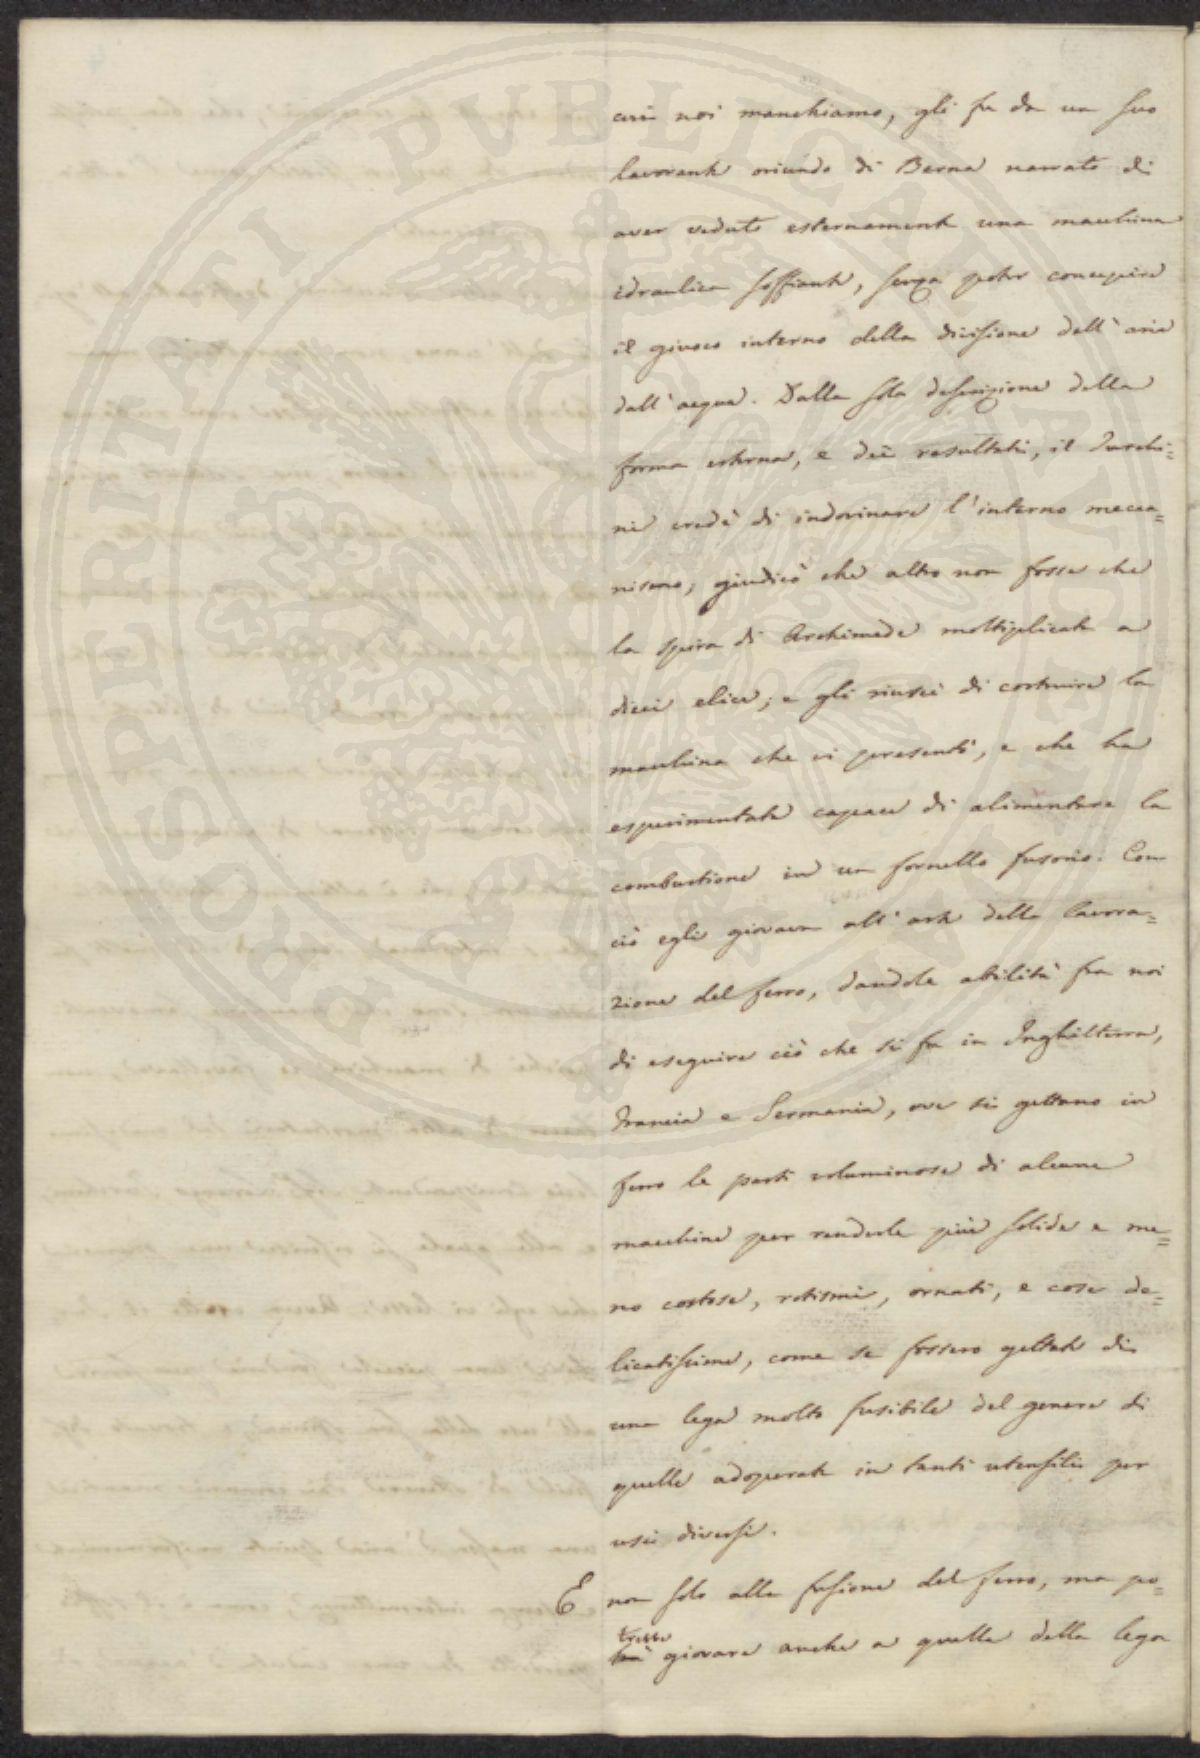 cui noi manchiamo, gli fu da un suo
lavorante oriundo di Berna narrato di
aver veduto esternamente una macchina
idraulica soffiante, senza poter concepire
il giuoco interno della divisione dell'aria
dall'acqua. Dalla sola descrizione della
forma esterna, e dei resultati, il Turchi=
ni credè di indovinare l'interno mecca=
nismo, giudicò che altro non fosse che
la spira di Archimede moltiplicata a
dieci elici; e gli riuscì di costruire la
macchina che vi presentò, e che ha
esperimentata capace di alimentare la
combustione in un fornello fusorio. Con
ciò egli giovava all'arte della lavora=
zione del ferro, dandole abilità fra noi
di eseguire ciò che si fa in Inghilterra,
Francia e Germania, ove si gettano in
ferro le parti voluminose di alcune
macchine per renderle più solide e me=
no costose, rotismi, ornati, e cose de=
licatissime, come se fossero gettate di
una lega molto fusibile del genere di
quelle adoperate in tanti utensili per
usi diversi.
E non solo alla fusione del ferro, ma po=
trebbe giovare anche a quella della lega
PROSPERITATI PUBLICAE